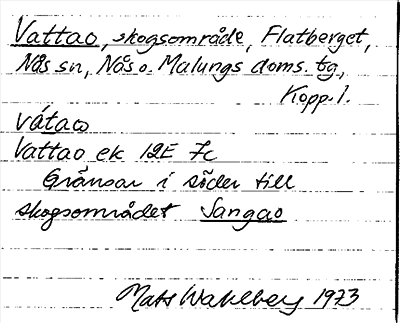 Vattao, skogsområde, Flatberget,
Nås sn, Nås o. Malungs doms. tg,
Kopp. l.
vátaω
Vattao ek 12E 7c
Gränsar i söder till
skogsområdet Sangao
Mats Wahlberg 1973